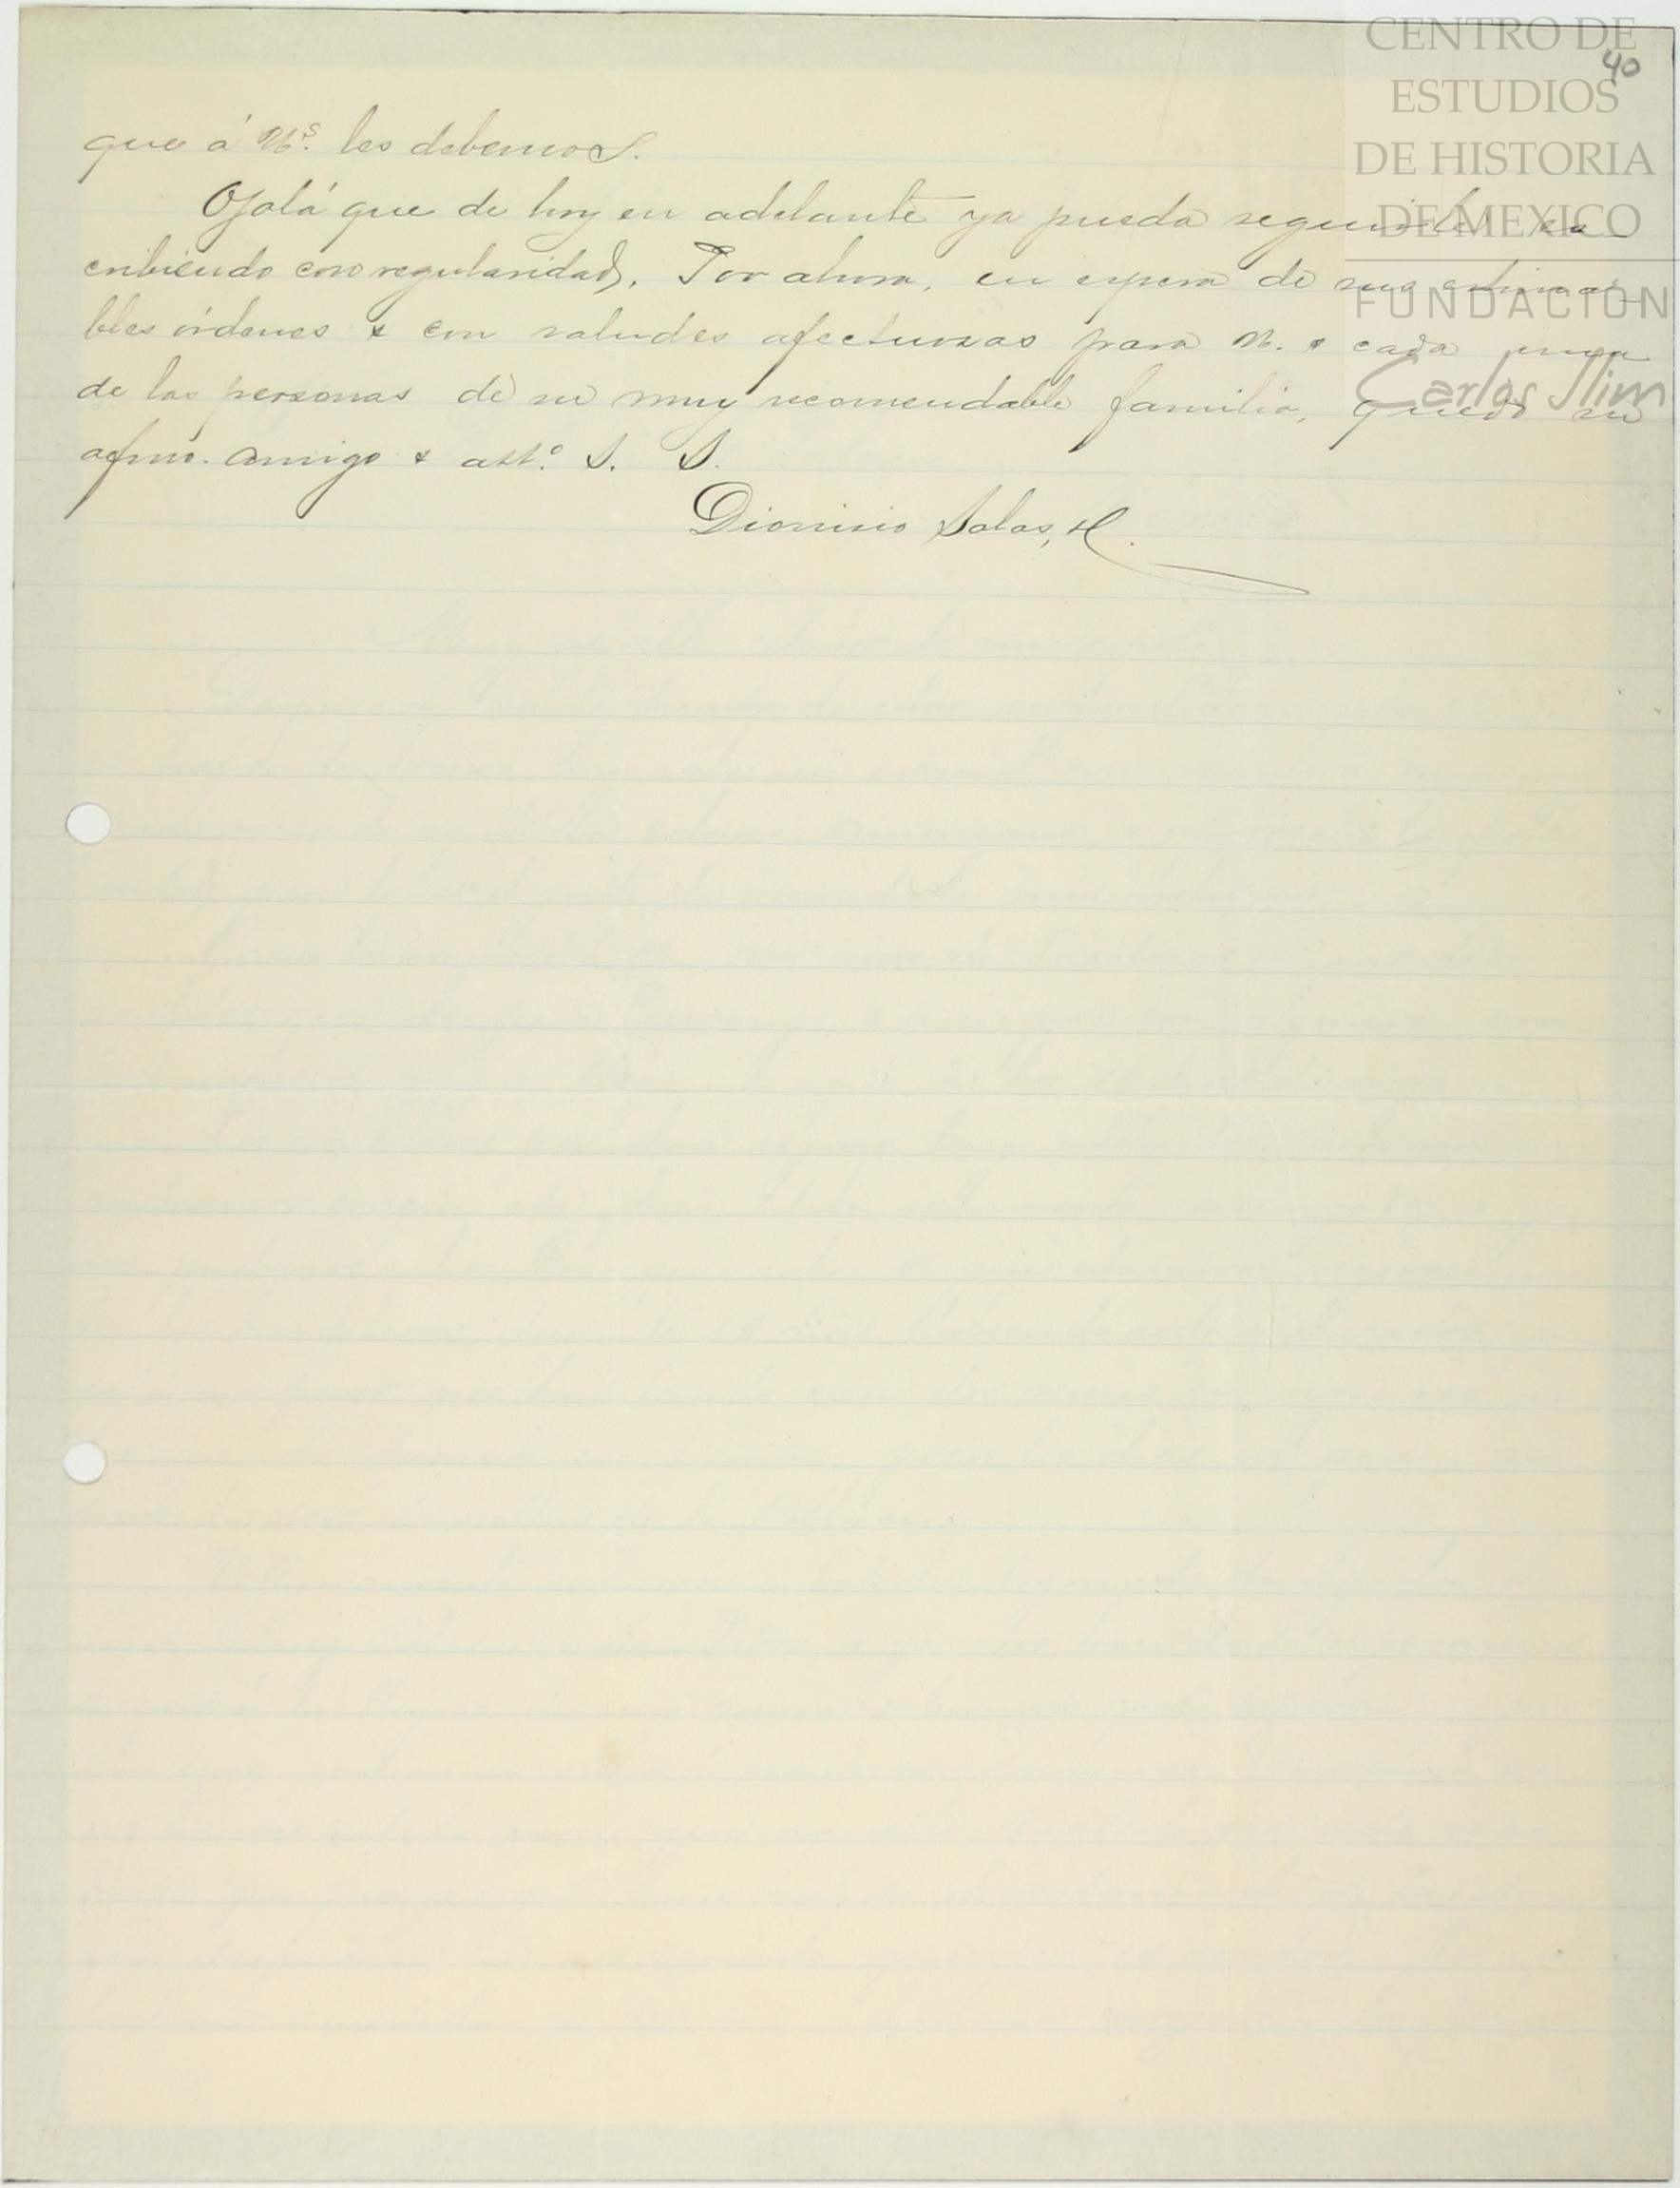 CENTRO DE
ESTUDIOS
DE HISTORIA
DE MEXICO
FUNDACIÓN
Carlos Slim
40
que á Us. les debemos.
Ojalá que de hoy en adelante ya pueda seguirle es-
cribiendo con regularidad. Por ahora, en espera de sus estima-
bles órdenes & con saludes afectuosas para U. & cada una
de las personas de su muy recomendable familia, quedo su
afmo. amigo & att.º S. S.
Dionisio Salas, H.